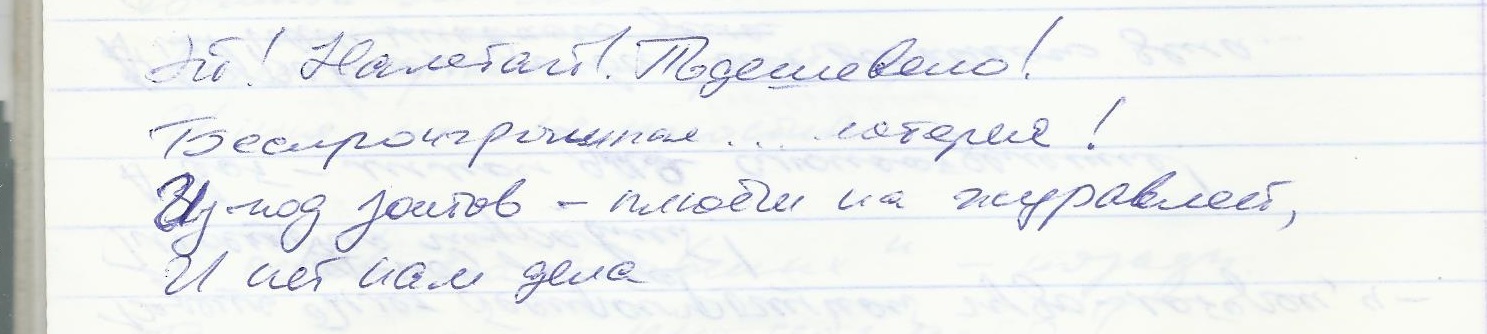 Эй! Налетай! Подешевело!
Беспроигрышная ... лотерея!
Из-под зонтов – плюём на журавлей,
И нет нам дела